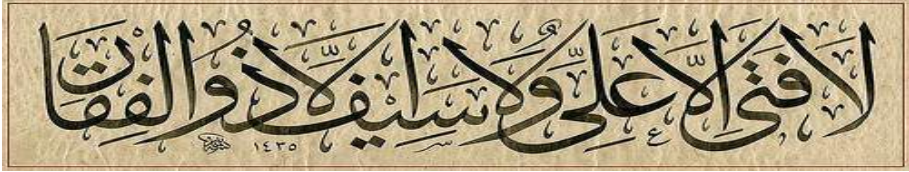 لَا فَتَى اِلَّا عَلِيّ وَلَا سَيْف اِلَّا ذُو الفِقَار
١٤٣٥